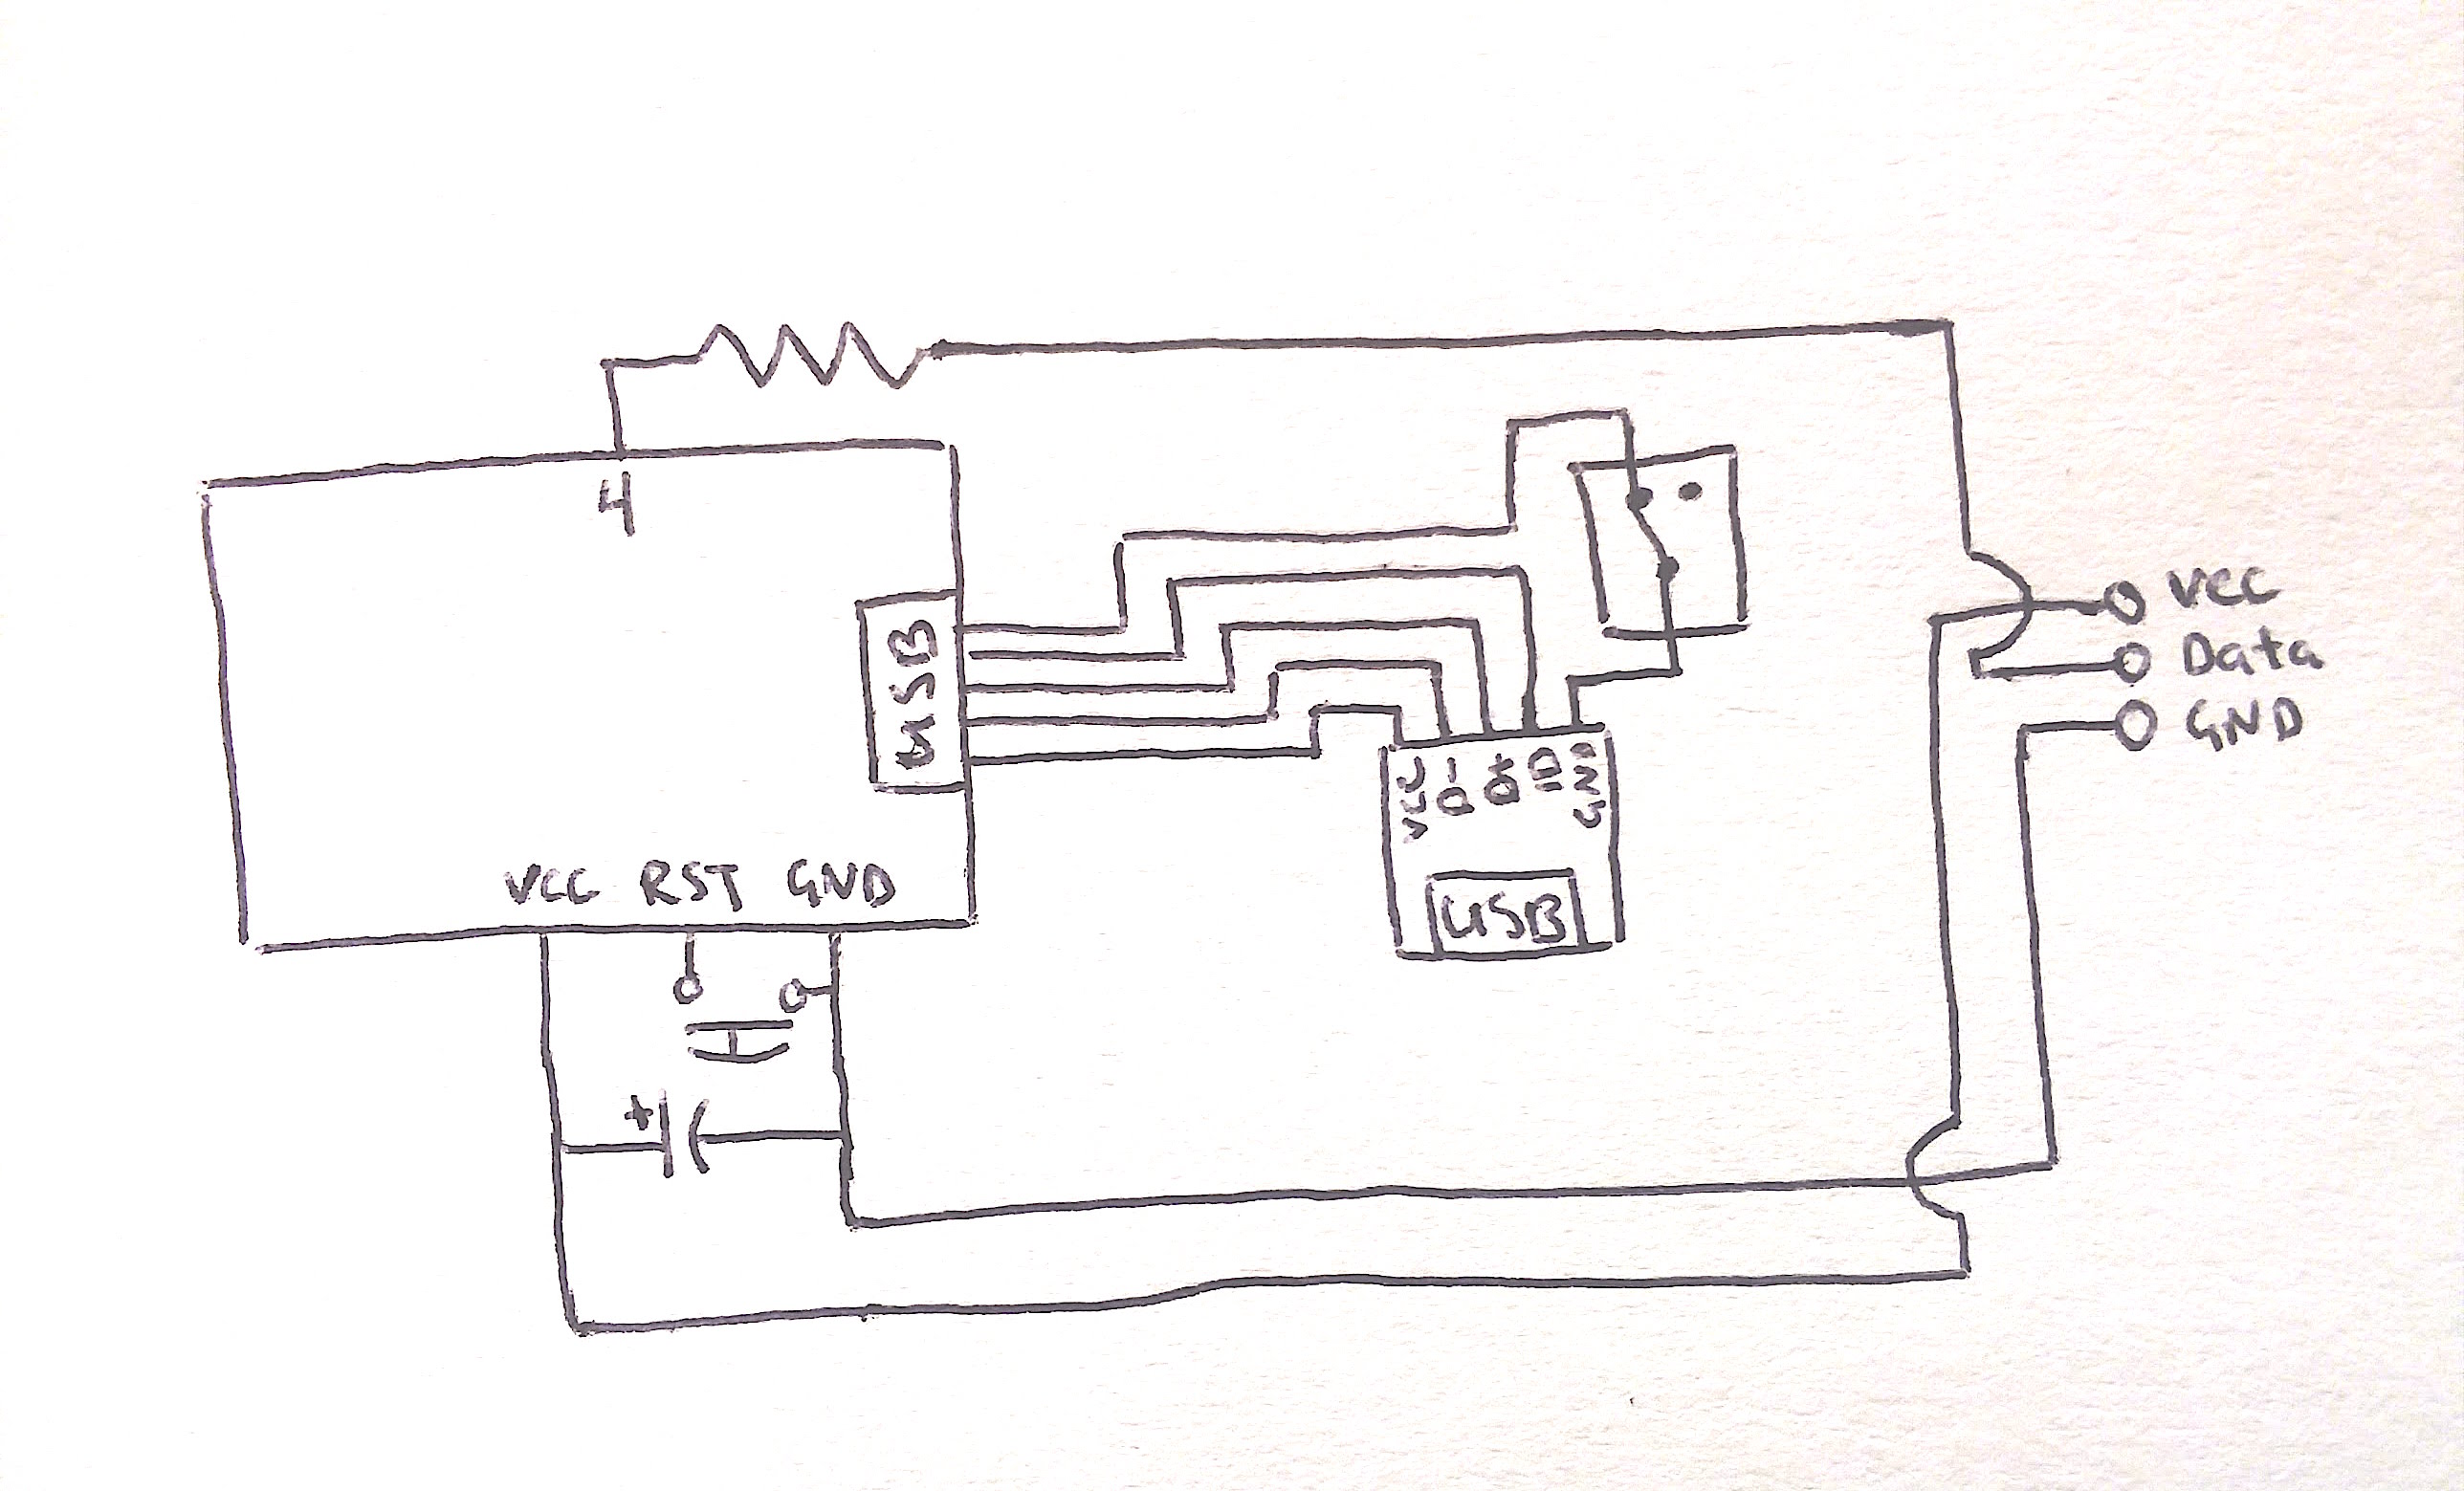 4
USB
VCC RST GND
+
VCC
D-
D+
ID
GND
USB
VCC
Data
GND